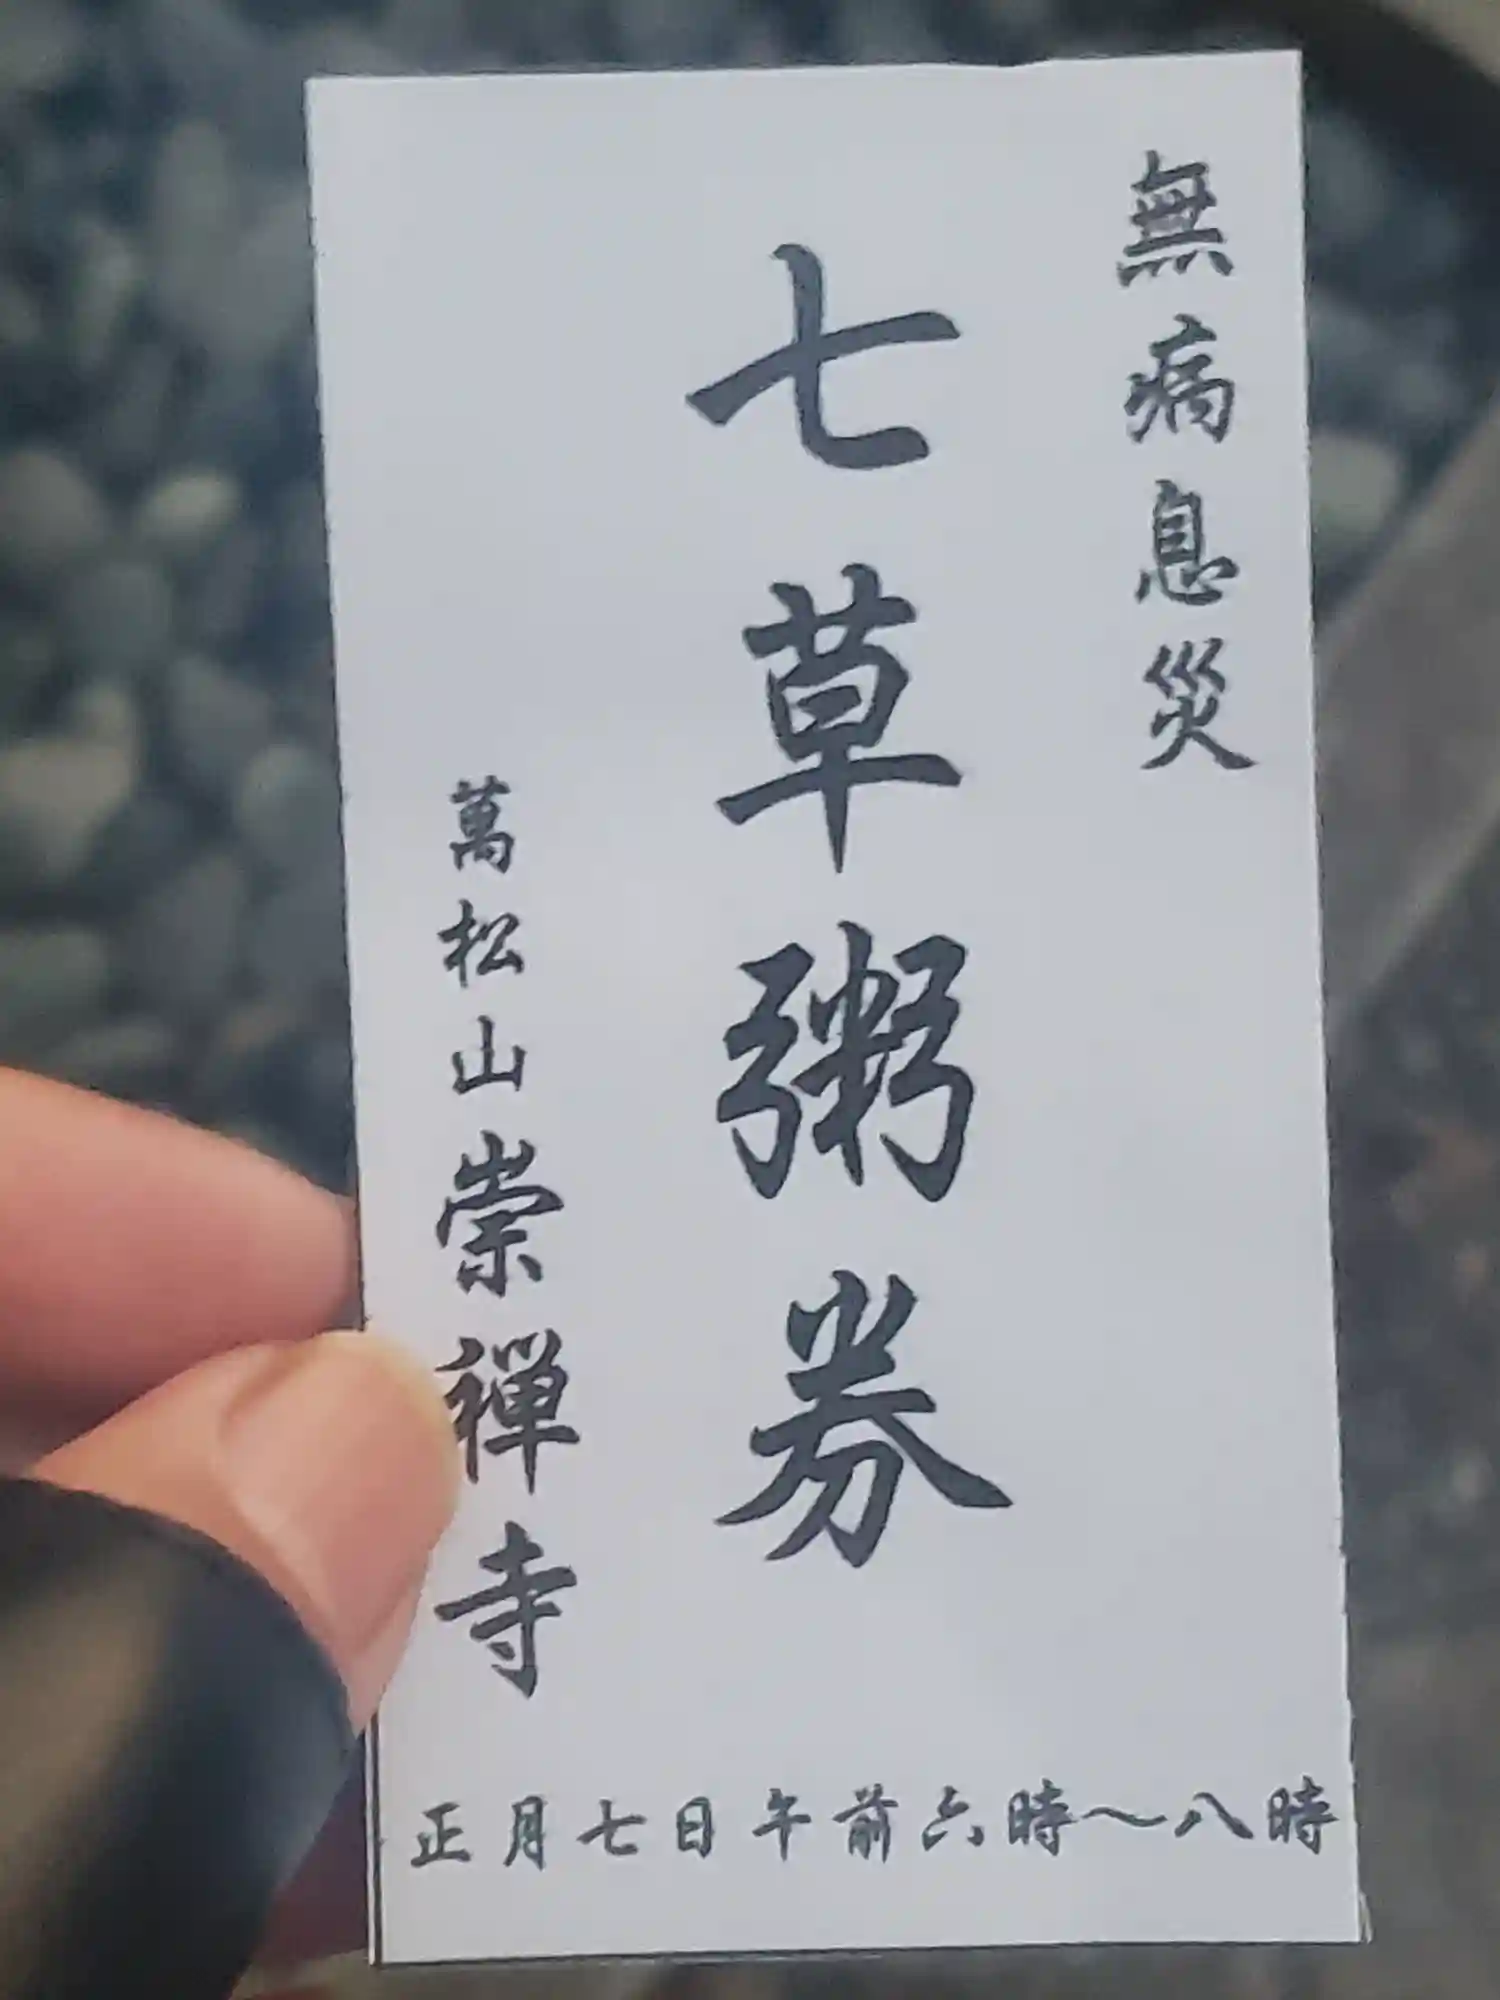 無病息災
七草粥券
萬松山崇禅寺
正月七日午前六時～八時